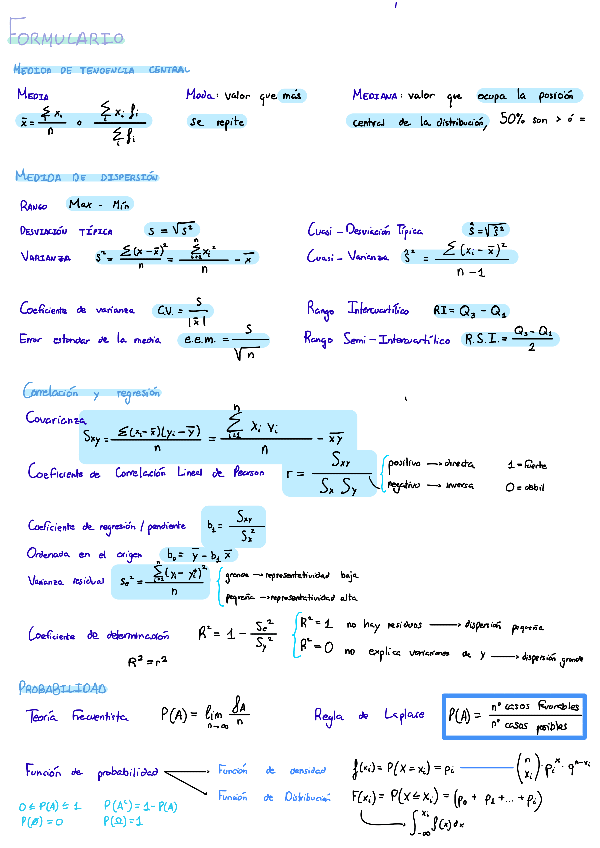 FORMULARIO
MEDIDA DE TENDENCIA CENTRAL
MEDIA
x̄ = Σxᵢ / n o Σxᵢfᵢ / Σfᵢ
Moda: valor que más
se repite
MEDIANA: valor que ocupa la posición
central de la distribución, 50% son > ó =
MEDIDA DE DISPERSIÓN
RANGO Max - Mín
DESVIACIÓN TÍPICA S = √S²
Cuasi-Desviación Típica Ŝ = √Ŝ²
VARIANZA S² = Σ(x - x̄)² / n = Σxᵢ² / n - x̄
Cuasi-Varianza Ŝ² = Σ(xᵢ - x̄)² / n - 1
Coeficiente de varianza C.V. = S / |x̄|
Rango Intercuartílico RI = Q₃ - Q₁
Error estandar de la media e.e.m. = S / √n
Rango Semi-Intercuartílico R.S.I. = Q₃ - Q₁ / 2
Correlación y regresión
Covarianza
Sxy = Σ(xᵢ - x̄)(yᵢ - ȳ) / n = Σxᵢ yᵢ / n - x̄ȳ
Coeficiente de Correlación Lineal de Pearson r = Sxy / Sx Sy
positivo → directa 1 = fuerte
negativo → inversa 0 = debil
Coeficiente de regresión / pendiente b₁ = Sxy / Sx²
Ordenada en el origen b₀ = ȳ - b₁ x̄
Varianza residual Se² = Σ(yᵢ - yᵢ*)² / n
grande → representatividad baja
pequeña → representatividad alta
Coeficiente de determinación R² = 1 - Se² / Sy²
R² = r²
R² = 1 no hay residuos → dispersión pequeña
R² = 0 no explica variaciones de y → dispersión grande
PROBABILIDAD
Teoría Frecuentista P(A) = lim n→∞ fA / n
Regla de Laplace P(A) = nº casos favorables / nº casos posibles
Función de probabilidad
Función de densidad f(xᵢ) = P(X = xᵢ) = pᵢ — (n xᵢ) · pᵢˣ · qⁿ⁻ˣ
Función de Distribución F(xᵢ) = P(X ≤ xᵢ) = (p₀ + p₁ + ... + pᵢ)
∫ xᵢ -∞ f(x) dx
0 ≤ P(A) ≤ 1 P(Aᶜ) = 1 - P(A)
P(∅) = 0 P(Ω) = 1